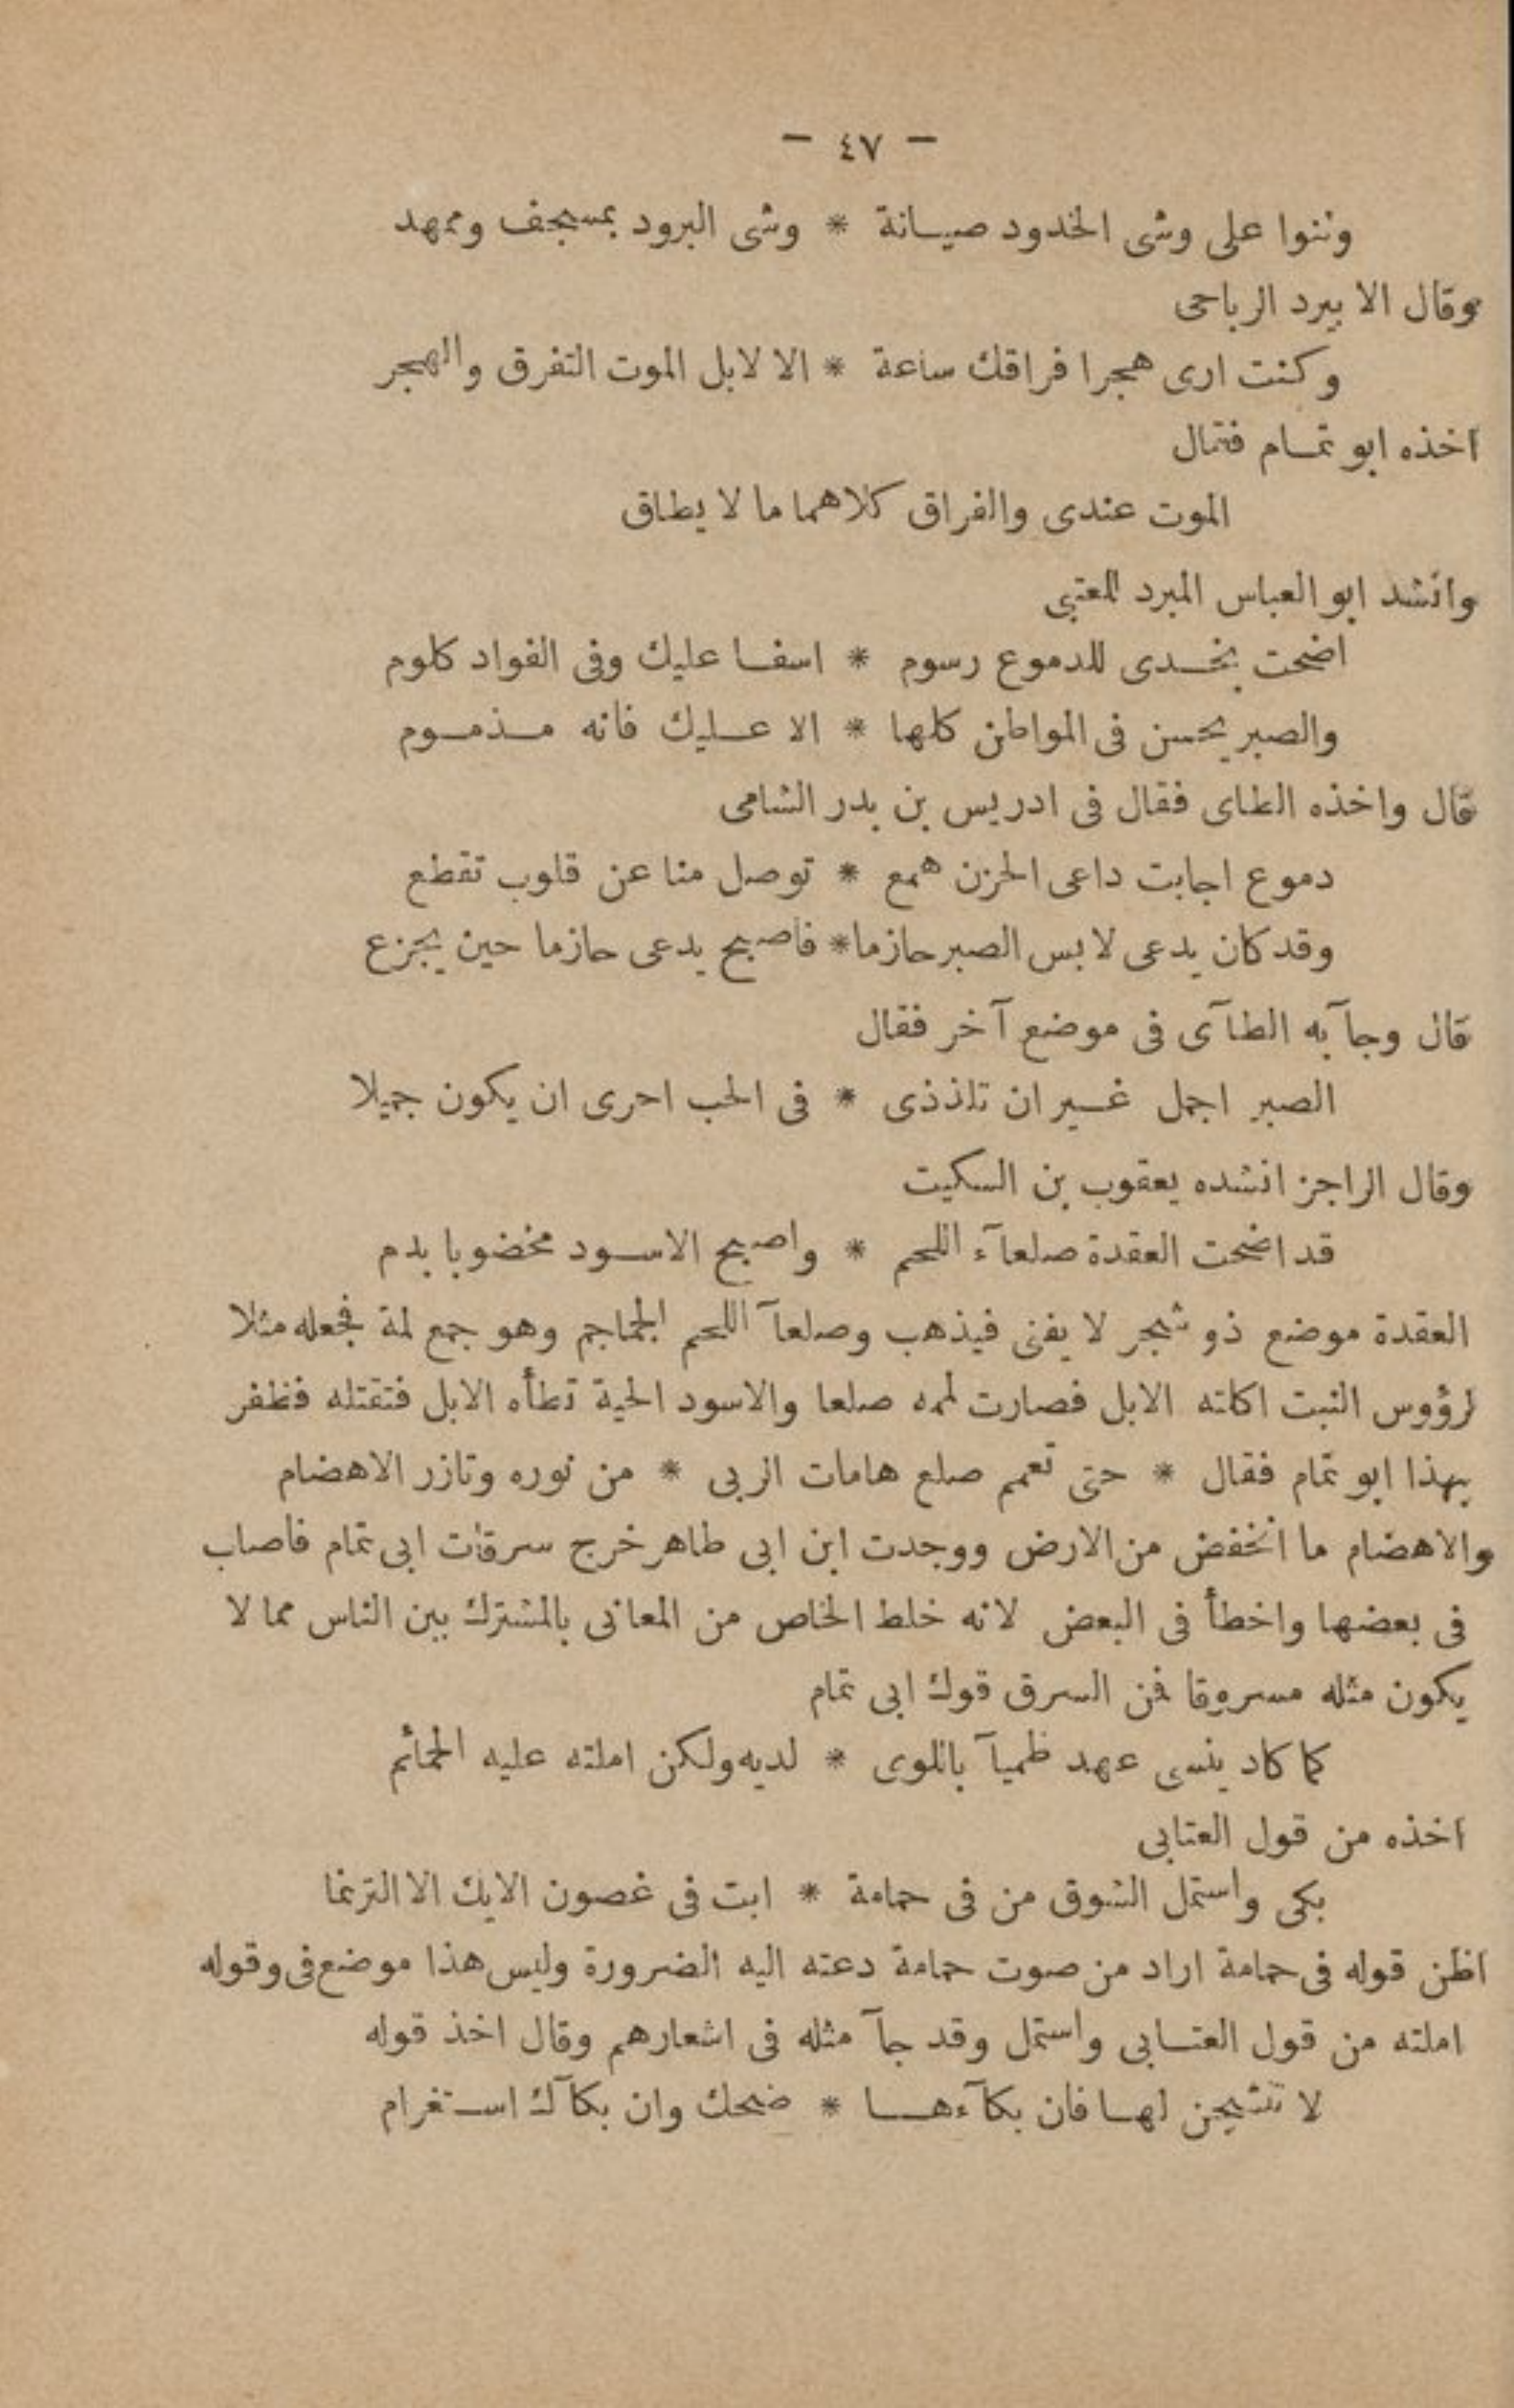 - ٤٧ -
وثنوا على وشى الخدود صيانة * وشى البرود بمسجف وممهد
وقال الابيرد الرياحى
وكنت ارى هجرا فراقك ساعة * الا لابل الموت التفرق والهجر
اخذه ابو تمام فقال
الموت عندى والفراق كلاهما ما لا يطاق
وانشد ابو العباس المبرد للعتبى
اضحت بخدى للدموع رسوم * اسفا عليك وفى الفواد كلوم
والصبر يحسن فى المواطن كلها * الا عليك فانه مذموم
قال واخذه الطاى فقال فى ادريس بن بدر الشامى
دموع اجابت داعى الحزن همع * توصل منا عن قلوب تقطع
وقد كان يدعى لابس الصبر حازما * فاصبح يدعى حازما حين يجزع
قال وجآ به الطآى فى موضع آخر فقال
الصبر اجمل غير ان تلذذى * فى الحب احرى ان يكون جميلا
وقال الراجز انشده يعقوب بن السكيت
قد اضحت العقدة صلعآء اللحم * واصبح الاسود مخضوبا بدم
العقدة موضع ذو شجر لا يفنى فيذهب وصلعآ اللحم الجماجم وهو جمع لمة فجعله مثلا
لرؤوس النبت اكلته الابل فصارت لممه صلعا والاسود الحية تطأه الابل فتقتله فظفر
بهذا ابو تمام فقال * حتى تعمم صلع هامات الربى * من نوره وتازر الاهضام
والاهضام ما انخفض من الارض ووجدت ابن ابى طاهر خرج سرقات ابى تمام فاصاب
فى بعضها واخطأ فى البعض لانه خلط الخاص من المعانى بالمشترك بين الناس مما لا
يكون مثله مسروقا فمن السرق قول ابى تمام
كما كاد ينسى عهد ظميآ باللوى * لديه ولكن املته عليه الحمائم
اخذه من قول العتابى
بكى واستمل الشوق من فى حمامة * ابت فى غصون الايك الا الترنما
اظن قوله فى حمامة اراد من صوت حمامة دعته اليه الضرورة وليس هذا موضع فى وقوله
املته من قول العتابى واستمل وقد جآ مثله فى اشعارهم وقال اخذ قوله
لا تنشجن لها فان بكآءها * ضحك وان بكآك استغرام